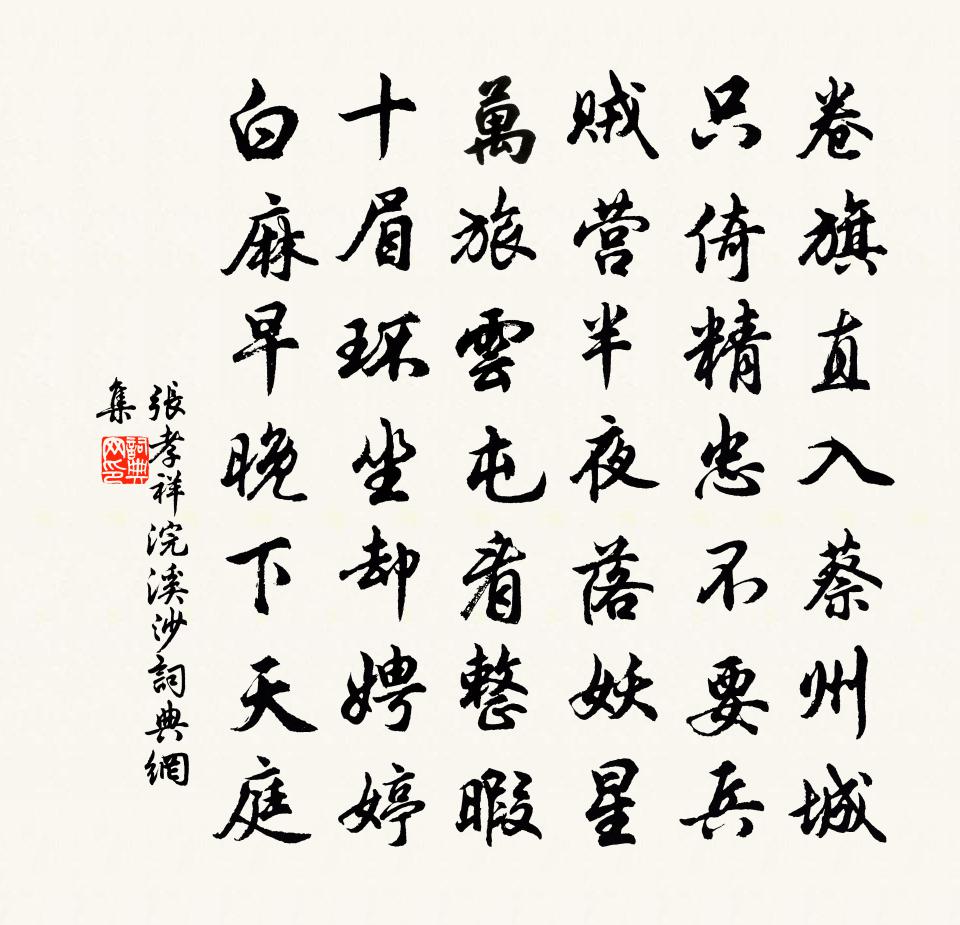 卷旗直入蔡州城
只倚精忠不要兵
賊营半夜落妖星
萬旅雲屯看整暇
十眉环坐却娉婷
白麻早晚下天庭
張孝祥浣溪沙詞典網
集
詞典网印